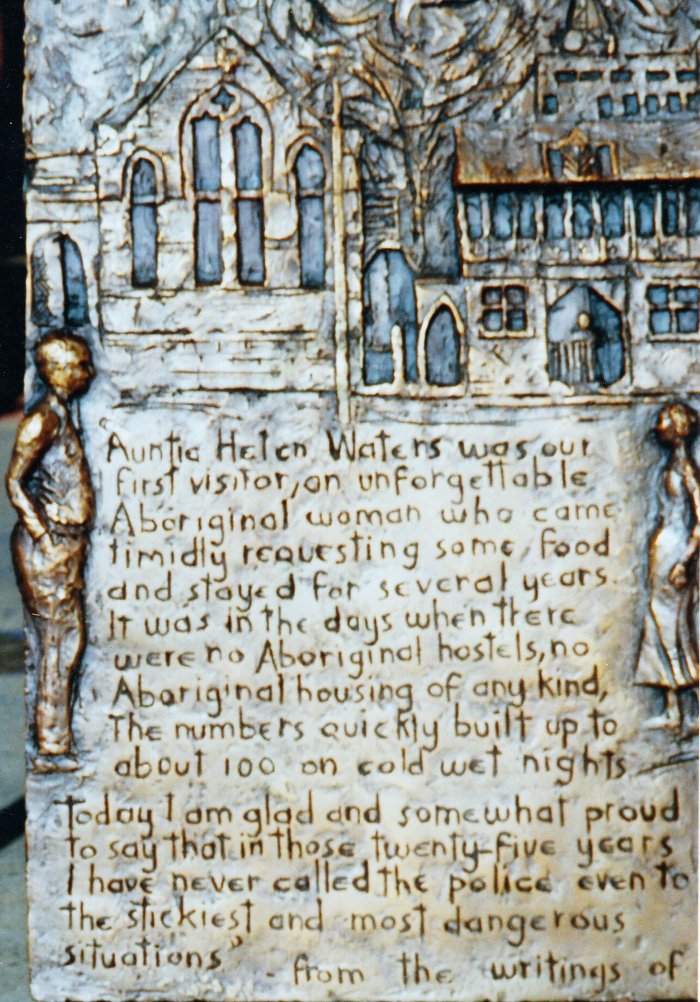 "Auntie Helen Waters was our
first visitor, an unforgettable
Aboriginal woman who came
timidly requesting some food
and stayed for several years.
It was in the days when there
were no Aboriginal hostels, no
Aboriginal housing of any kind,
The numbers quickly built up to
about 100 on cold wet nights
Today I am glad and somewhat proud
to say that in those twenty-five years
I have never called the police even to
the stickiest and most dangerous
situations"
- from the writings of